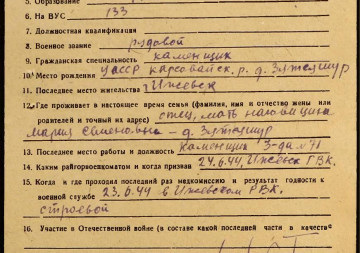 5. Образование
6. На ВУС 133
7. Должностная квалификация
8. Военное звание рядовой
9. Гражданская специальность каменщик
10. Место рождения УАССР Карсовайск. р. д.
11. Последнее место жительства г Ижевск
12. Где проживает в настоящее время семья (фамилия, имя и отчество жены или
родителей и точный их адрес) отец, мать
Мария Семеновна – д.
13. Последнее место работы и должность Каменщик З-да № 71
14. Каким райгорвоенкоматом и когда призван 24.6.44, Ижевск ГВК.
15. Когда и где проходил последний раз медкомиссию и результат годности к
военной службе 23.6.44 в Ижевском РВК.
строевой
16. Участие в Отечественной войне (в составе какой последней части в качестве